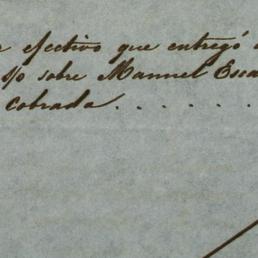 efectivo que entregó
s/o sobre Manuel Esca
cobrada . . . . . . .